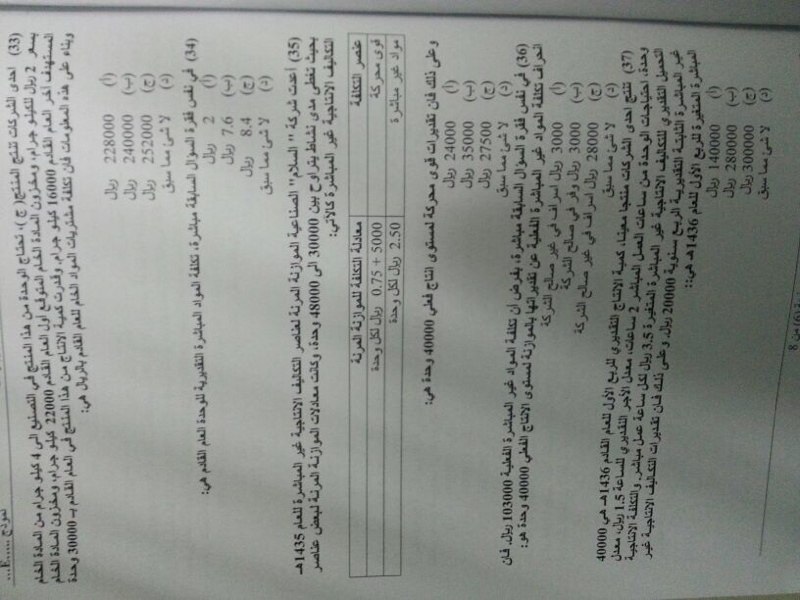 نموذج ....E...
(33) احدى الشركات تنتج المنتج( ج )، تحتاج الوحدة من هذا المنتج في التصنيع الى 4 كيلو جرام من المادة الخام
بسعر 2 ريال للكيلو جرام، ومخزون المادة الخام المتوقع اول العام القادم 22000 كيلو جرام، ومخزون المادة الخام
المستهدف اخر العام القادم 16000 كيلو جرام، وقدرت كمية الانتاج من هذا المنتج في العام القادم بـ 30000 وحدة
وبناء على هذه المعلومات فان تكلفة مشتريات المواد الخام للعام القادم بالريال هي:
(أ) 228000 ريال
(ب) 240000 ريال
(ج) 252000 ريال
(د) لا شئ مما سبق
(34) في نفس فقرة السؤال السابقة مباشرة، تكلفة المواد المباشرة التقديرية للوحدة العام القادم هي:
(أ) 2 ريال
(ب) 7.6 ريال
(ج) 8.4 ريال
(د) لا شئ مما سبق
(35) اعدت شركة " السلام" الصناعية الموازنة المرنة لعناصر التكاليف الانتاجية غير المباشرة للعام 1435هـ
بحيث تغطى مدى نشاط يتراوح بين 30000 الى 48000 وحدة، وكانت معادلات الموازنة المرنة لبعض عناصر
التكاليف الانتاجية غير المباشرة كالآتي:
عنصر التكلفة معادلة التكلفة للموازنة المرنة
قوى محركة 5000 + 0.75 ريال لكل وحدة
مواد غير مباشرة 2.50 ريال لكل وحدة
وعلى ذلك فان تقديرات قوى محركة لمستوى انتاج فعلي 40000 وحدة هي:
(أ) 24000 ريال
(ب) 35000 ريال
(ج) 27500 ريال
(د) لا شئ مما سبق
(36) في نفس فقرة السؤال السابقة مباشرة، بفرض ان تكلفة المواد غير المباشرة الفعلية 103000 ريال. فان
انحراف تكلفة المواد غير المباشرة الفعلية عن تقديراتها بالموازنة لمستوى الانتاج الفعلي 40000 وحدة هو:
(أ) 3000 ريال اسراف في غير صالح الشركة
(ب) 3000 ريال وفر في صالح الشركة
(ج) 28000 ريال اسراف في غير صالح الشركة
(د) لا شئ مما سبق
(37) تنتج احدى الشركات منتجا معينا، كمية الانتاج التقديري للربع الأول للعام القادم 1436هـ هي 40000
وحدة، احتياجات الوحدة من ساعات العمل المباشر 2 ساعات، معدل الأجر التقديري للساعة 1.5 ريال، معدل
التحميل التقديري للتكاليف الانتاجية غير المباشرة المتغيرة 3.5 ريال لكل ساعة عمل مباشر. والتكلفة الانتاجية
غير المباشرة الثابتة التقديرية الربع سنوية 20000 ريال. وعلى ذلك فان تقديرات التكاليف الانتاجية غير
المباشرة المتغيرة للربع الأول للعام 1436هـ هي::
(أ) 140000 ريال
(ب) 280000 ريال
(ج) 300000 ريال
(د) لا شئ مما سبق
(6) من 8